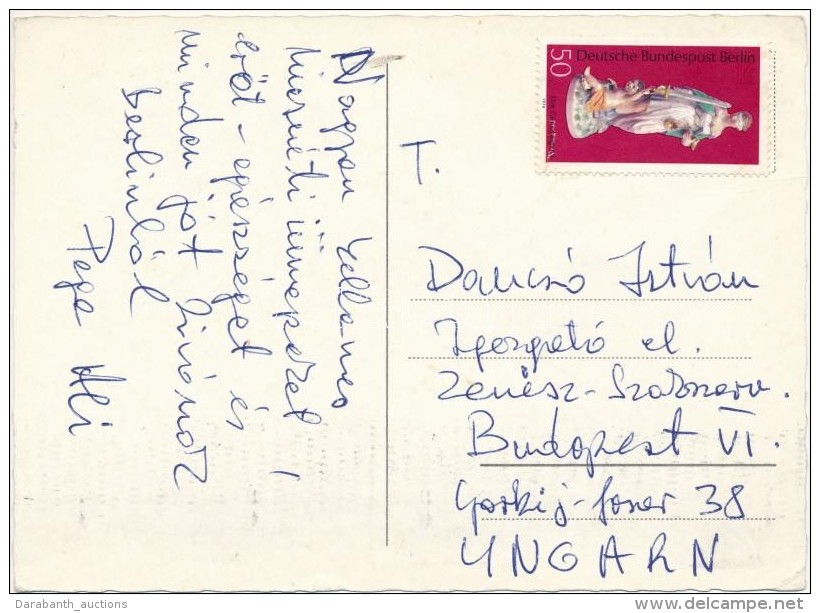 Nagyon kellemes
húsvéti ünnepeket!
erőt - egészséget és
minden jót kívánok
Berlinből
Pege Ali
50
Deutsche Bundespost Berlin
T.
Dancsó István
Igazgató el.
Zenész-Szakszerv.
Budapest VI.
Gorkij-fasor 38
UNGARN
Darabanth_auctions
www.delcampe.net